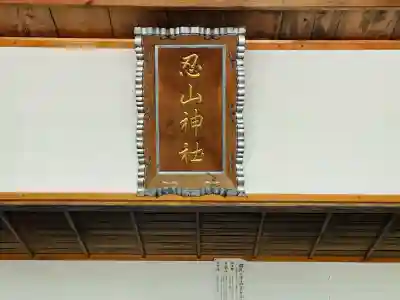 忍山神社